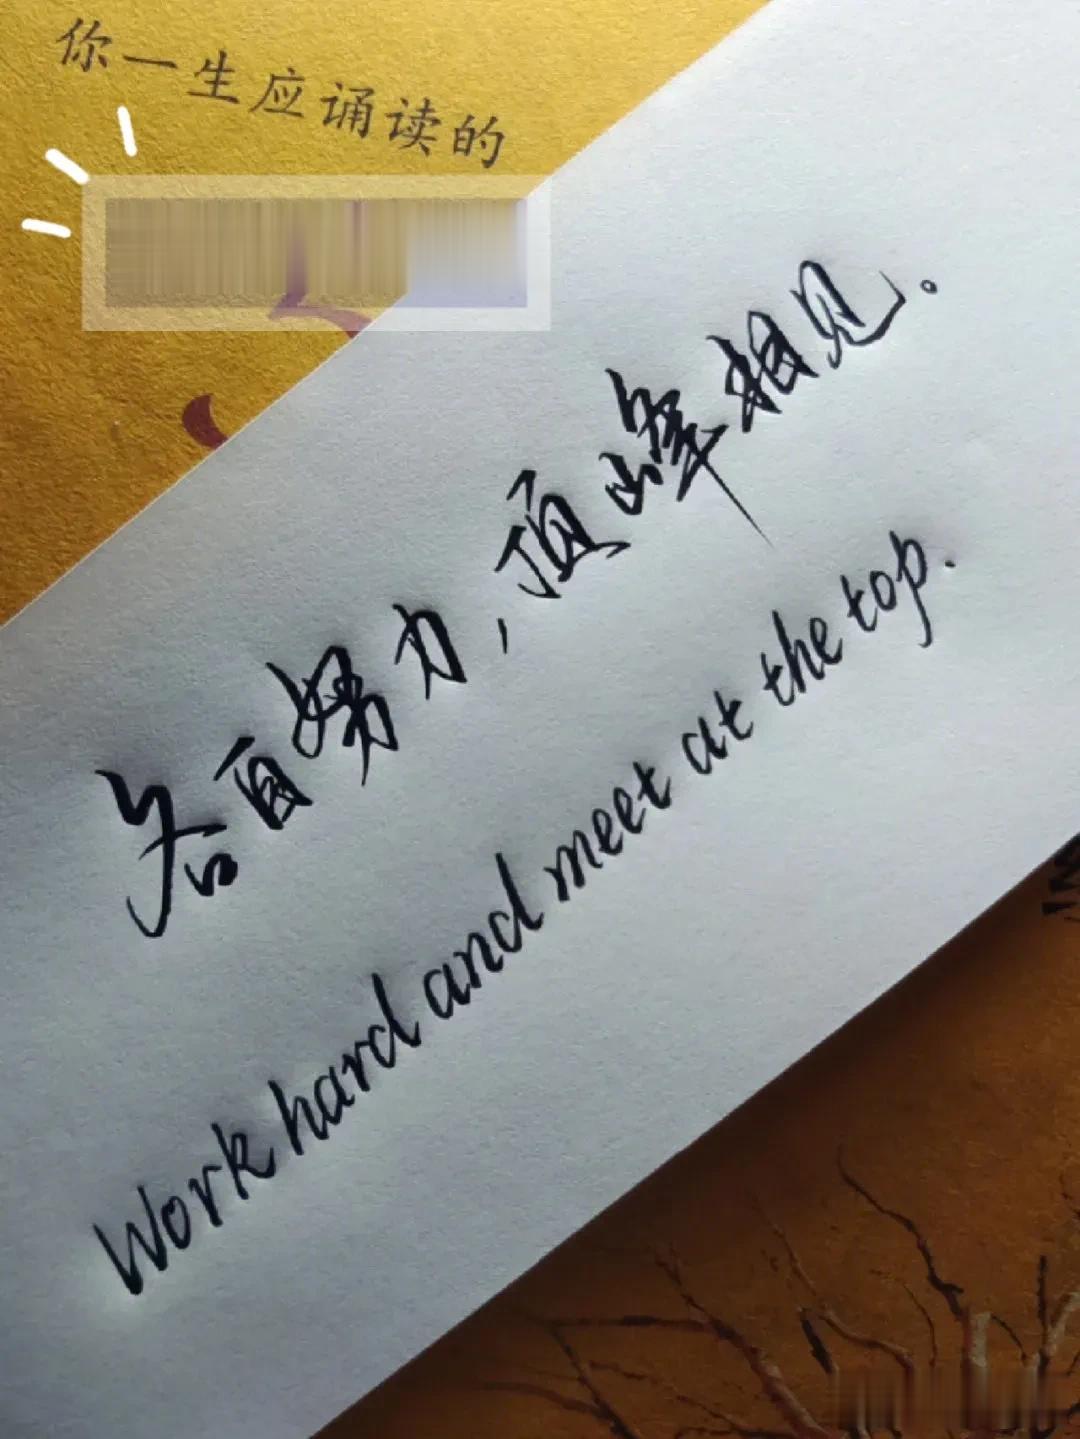 你一生应诵读的
各自努力,顶峰相见。
Work hard and meet at the top.